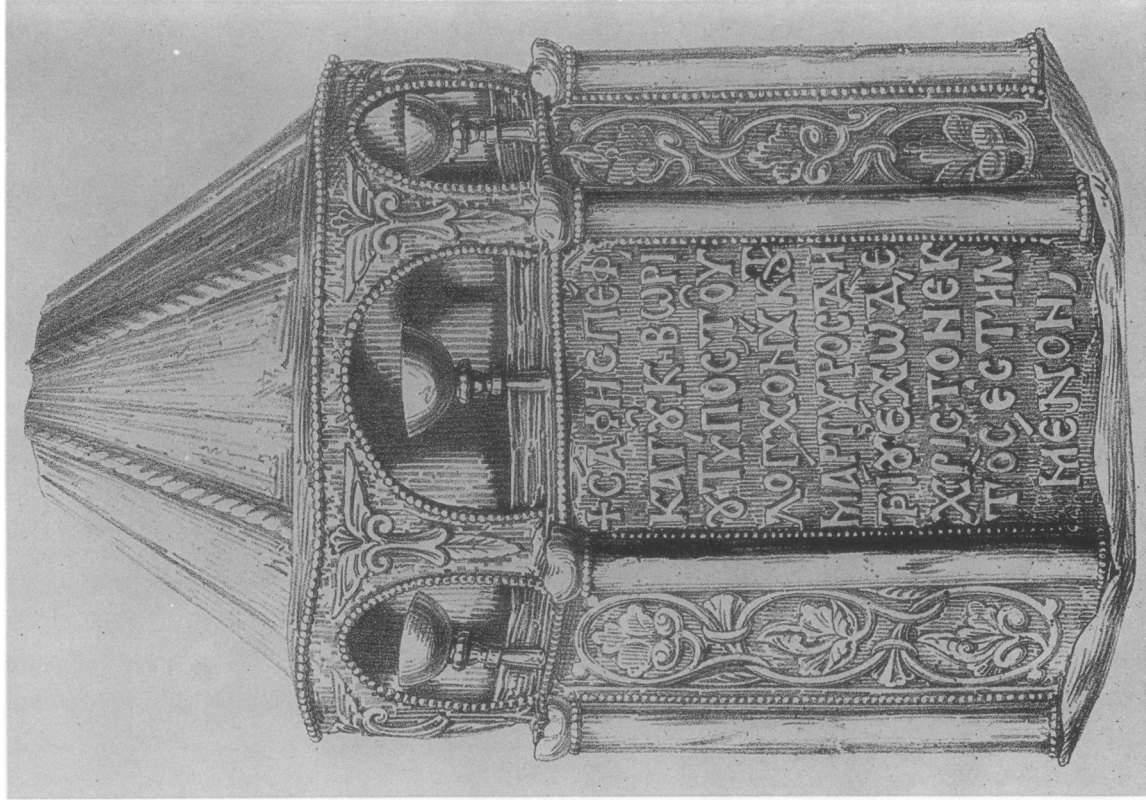 +CΑΦΗCΠΕΦ,
ΚΑΤȢΚΗΒΩΡΙ
ȢΤΥΠΟCΤΟΥ
ΛΟΓΧΟΝΗΚΤȢ
ΜΑΡΤΥΡΟCΔΗ
ΤΡΙȢΕΧΩΔΕ
ΧΡΙCΤΟΝΕΚ
ΤΟCΕCΤΗΛ
ΜΕΝΟΝ,